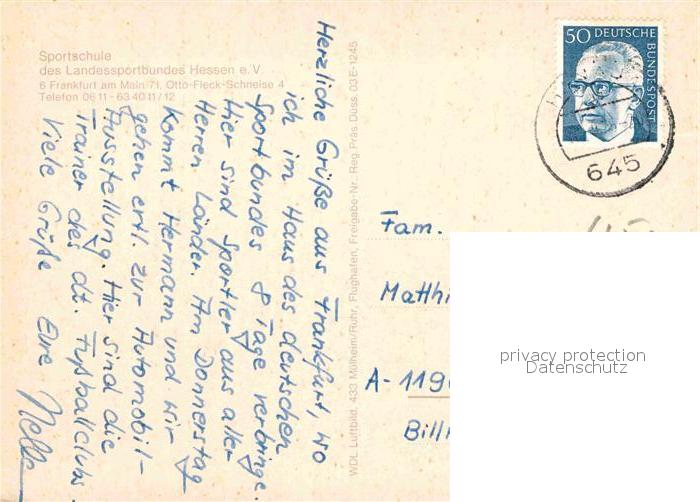 Sportschule
des Landessportbundes Hessen e.V.
6 Frankfurt am Main 71, Otto-Fleck-Schneise 4
Telefon 06 11 - 63 40 11 / 12
Herzliche Grüße aus Frankfurt, wo
ich im Haus des deutschen
Sportbundes 8 Tage verbringe.
Hier sind Sportler aus aller
Herren Länder. Am Donnerstag
kommt Hermann und wir
gehen evtl. zur Automobil-
Ausstellung. Hier sind die
Trainer des dt. Fußballclubs
Viele Grüße Eure
WDL Luftbild, 433 Mülheim/Ruhr, Flughafen, Freigabe-Nr.: Reg. Präs. Düss. 03 E-1245
50 DEUTSCHE
BUNDESPOST
645
Fam.
Matthi
A-119
Billr
privacy protection
Datenschutz